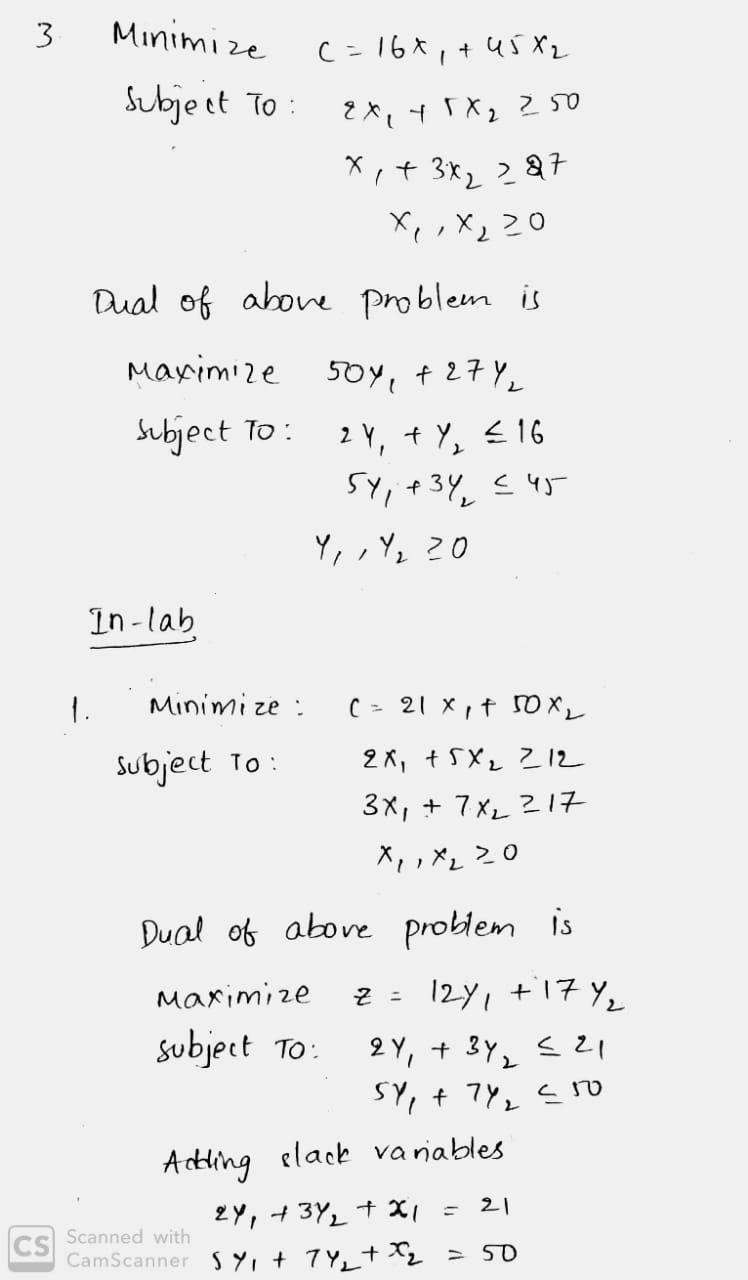 3. Minimize C = 16x₁ + 45x₂
Subject To: 2x₁ + 5x₂ ≥ 50
x₁ + 3x₂ ≥ 27
x₁, x₂ ≥ 0
Dual of above problem is
Maximize 50y₁ + 27y₂
Subject To: 2y₁ + y₂ ≤ 16
5y₁ + 3y₂ ≤ 45
y₁, y₂ ≥ 0
In-lab
1. Minimize: C = 21x₁ + 50x₂
Subject To: 2x₁ + 5x₂ ≥ 12
3x₁ + 7x₂ ≥ 17
x₁, x₂ ≥ 0
Dual of above problem is
Maximize z = 12y₁ + 17y₂
Subject To: 2y₁ + 3y₂ ≤ 21
5y₁ + 7y₂ ≤ 50
Adding slack variables
2y₁ + 3y₂ + x₁ = 21
5y₁ + 7y₂ + x₂ = 50
CS Scanned with
CamScanner